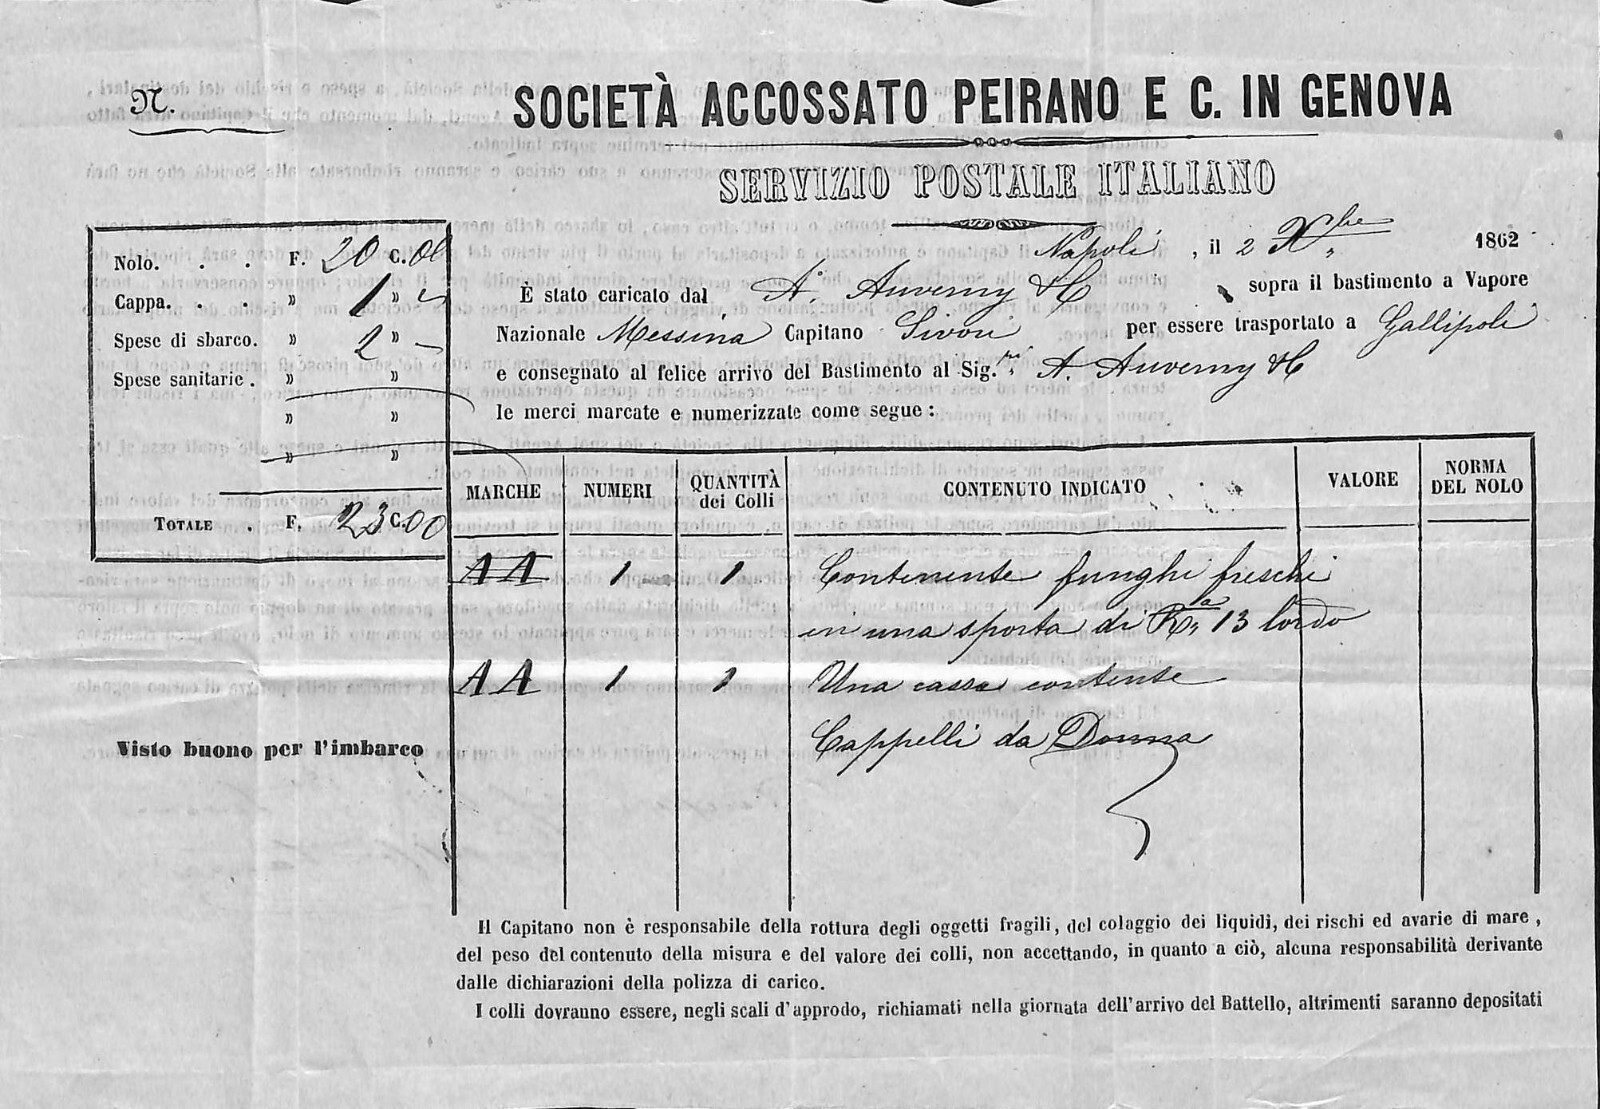 N.
SOCIETÀ ACCOSSATO PEIRANO E C. IN GENOVA
SERVIZIO POSTALE ITALIANO
Nolo. . . . F. 20 C. 00
Cappa. . . . » 1 » –
Spese di sbarco. » 2 » –
Spese sanitarie . » »
» »
» »
TOTALE . F. 23 C. 00
Napoli , il 2 Xbre 1862
È stato caricato dal A. Auverny & C sopra il bastimento a Vapore
Nazionale Messina Capitano Sivori per essere trasportato a Gallipoli
e consegnato al felice arrivo del Bastimento al Sig.ri A. Auverny & C
le merci marcate e numerizzate come segue :
MARCHE NUMERI QUANTITÀ dei Colli CONTENUTO INDICATO VALORE NORMA DEL NOLO
AA 1 1 Contenente funghi freschi
in una sporta di R.la 13 lordo
AA 1 1 Una cassa contense
Cappelli da Donna
Visto buono per l'imbarco
Il Capitano non è responsabile della rottura degli oggetti fragili, del colaggio dei liquidi, dei rischi ed avarie di mare ,
del peso del contenuto della misura e del valore dei colli, non accettando, in quanto a ciò, alcuna responsabilità derivante
dalle dichiarazioni della polizza di carico.
I colli dovranno essere, negli scali d'approdo, richiamati nella giornata dell'arrivo del Battello, altrimenti saranno depositati